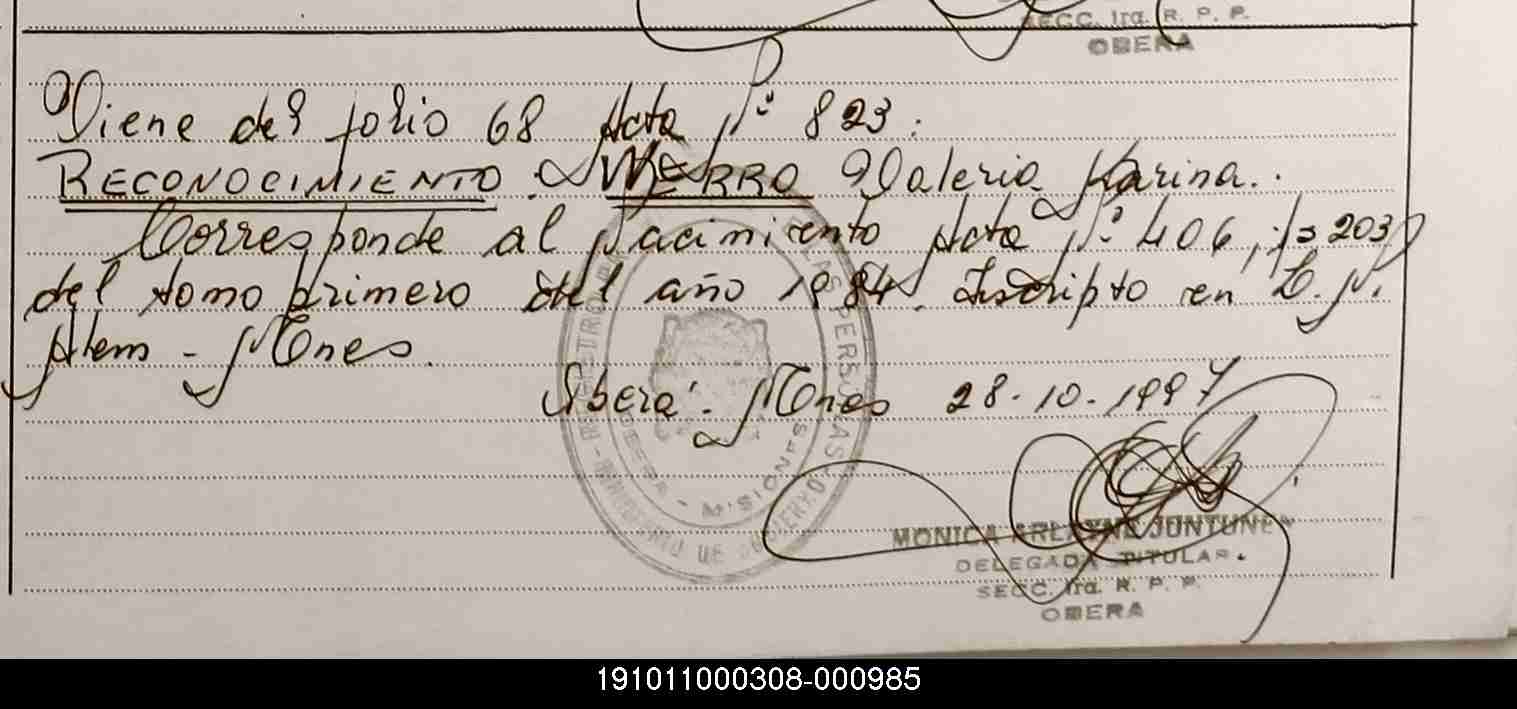 SECC. 1ra. R. P. P.
OBERA
Viene del folio 68 Acta Nº 823.
RECONOCIMIENTO. Valeria Karina.
Corresponde al Nacimiento Acta Nº 406, fº 203
del tomo primero del año 1984. Inscripto en L. N.
Alem - Mnes.
Oberá. Mnes 28.10.1997
REGISTRO DE LAS PERSONAS
MINISTERIO DE GOBIERNO
OBERA - MISIONES
MONICA ARLAYNE JUNTUNEN
DELEGADA TITULAR.
SECC. 1ra. R. P. P.
OBERA
191011000308-000985